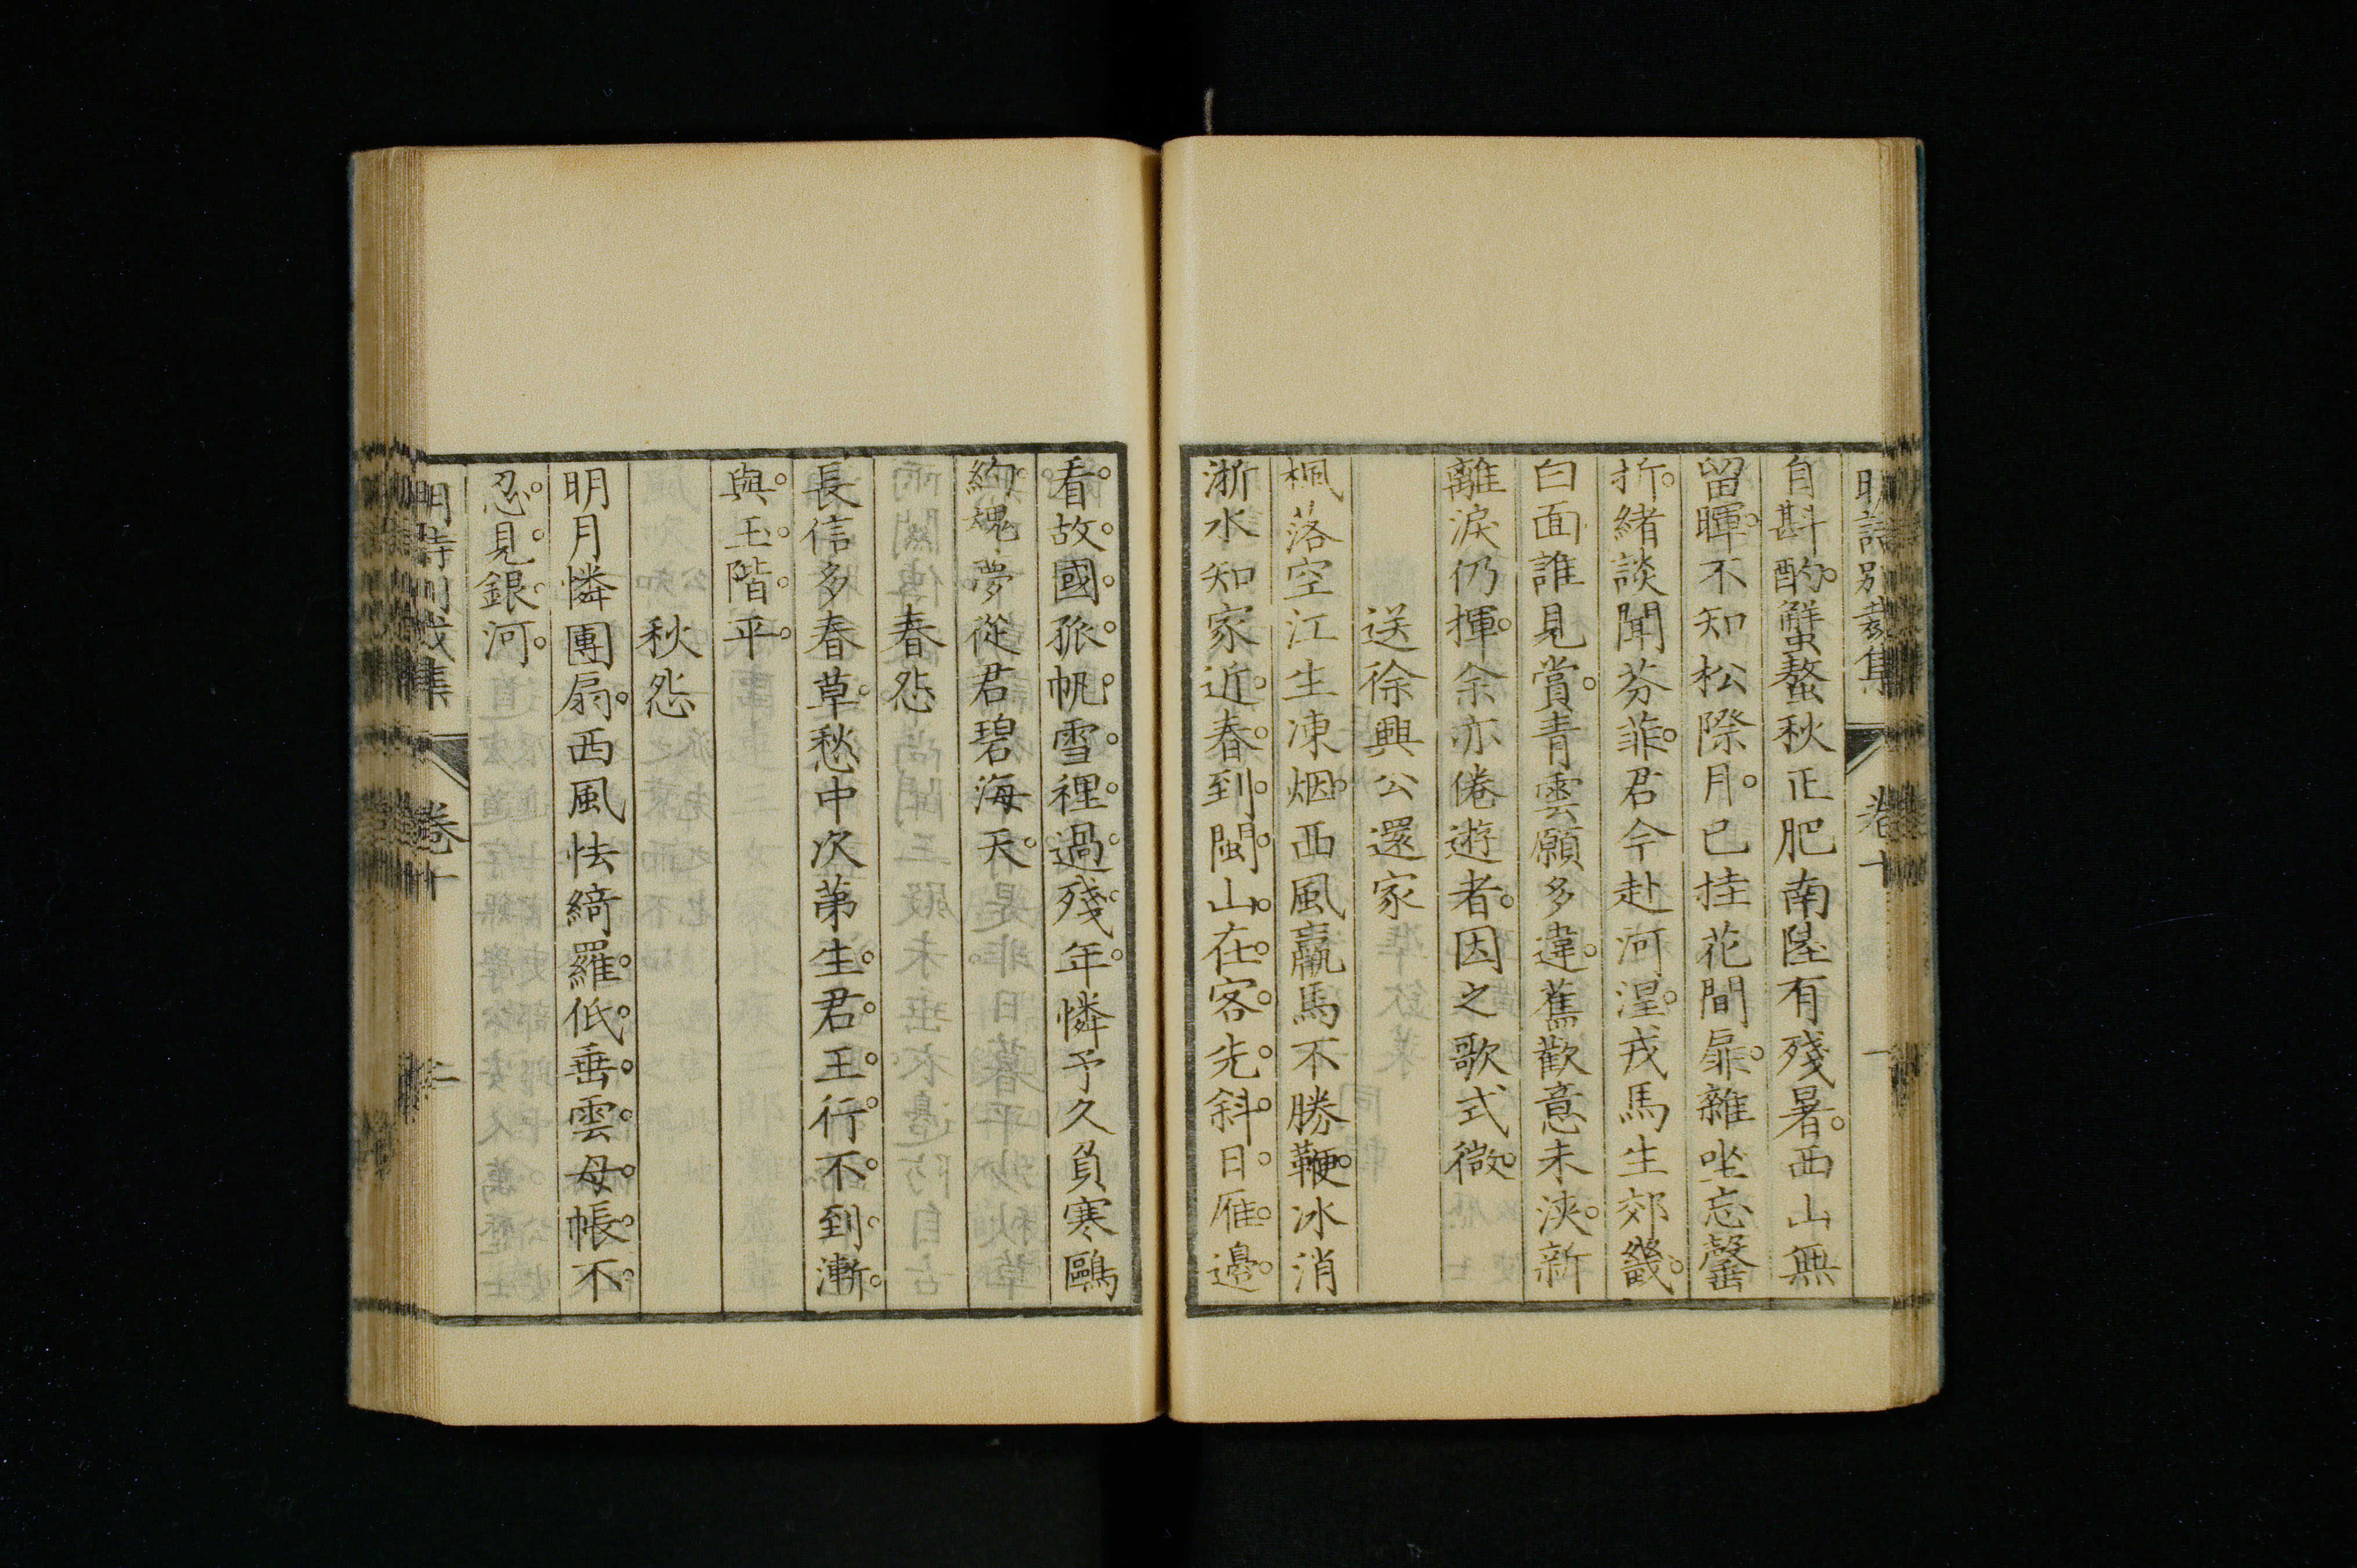 明詩別裁集 卷十
自斟酌蟹螯秋正肥南陸有殘暑西山無
留暉不知松際月已挂花間扉雜坐忘罄
折緒談聞芬菲君今赴河湟戎馬生郊畿
白面誰見賞青雲願多違舊歡意未浹新
離淚仍揮余亦倦遊者因之歌式微
送徐興公還家
楓落空江生凍烟西風羸馬不勝鞭冰消
浙水知家近春到閩山在客先斜日雁邊
看故國孤帆雪裡過殘年憐予久負寒鷗
約魂夢從君碧海天
春怨
長信多春草愁中次第生君王行不到漸
與玉階平
秋怨
明月憐團扇西風怯綺羅低垂雲母帳不
忍見銀河
明詩別裁集 卷十 二